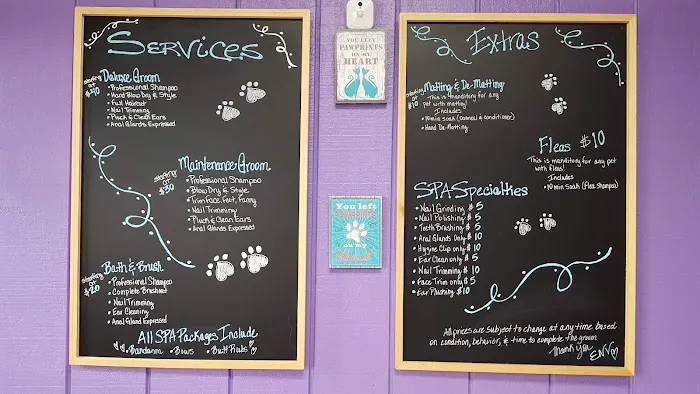 Services
Deluxe Groom
starting at $40
• Professional Shampoo
• Hand Blow Dry & Style
• Full Haircut
• Nail Trimming
• Pluck & Clean Ears
• Anal Glands Expressed
Maintenance Groom
starting at $30
• Professional Shampoo
• Blow Dry & Style
• Trim Face, Feet, Fanny
• Nail Trimming
• Pluck & Clean Ears
• Anal Glands Expressed
Bath & Brush
starting at $20
• Professional Shampoo
• Complete Brushout
• Nail Trimming
• Ear Cleaning
• Anal Gland Expressed
All SPA Packages Include
• Bandanna • Bows • Butt Rubs
YOU LEFT
PAWPRINTS
ON MY
HEART
You left
PAWPRINTS
on my
Heart
Extras
Matting & De-Matting
starting at $10
This is manditory for any
pet with matting!
Includes
• 10 min soak (Dannel & conditioner)
• Hand De-Matting
Fleas $10
This is manditory for any pet
with fleas!
Includes
• 10 min soak (Flea Shampoo)
SPA Specialties
• Nail Grinding $ 5
• Nail Polishing $ 5
• Teeth Brushing $ 5
• Anal Glands Only $ 10
• Hygine Clip only $ 10
• Ear Clean only $ 5
• Nail Trimming $ 10
• Face Trim only $ 5
• Ear Plucking $ 10
All prices are subject to change at any time based
on condition, behavior, & time to complete the groom
Thank you